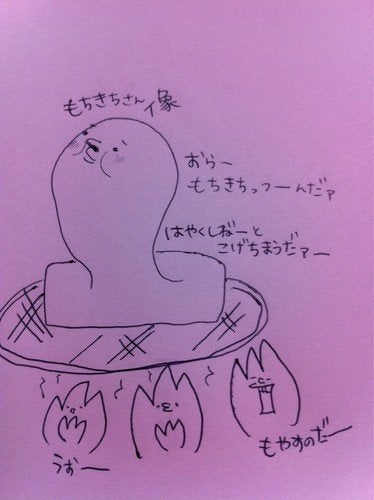 もちきちさん像
おらー
もちきちっつーんだァ
はやくしねーと
こげちまうだァー
うおー
もやすのだー